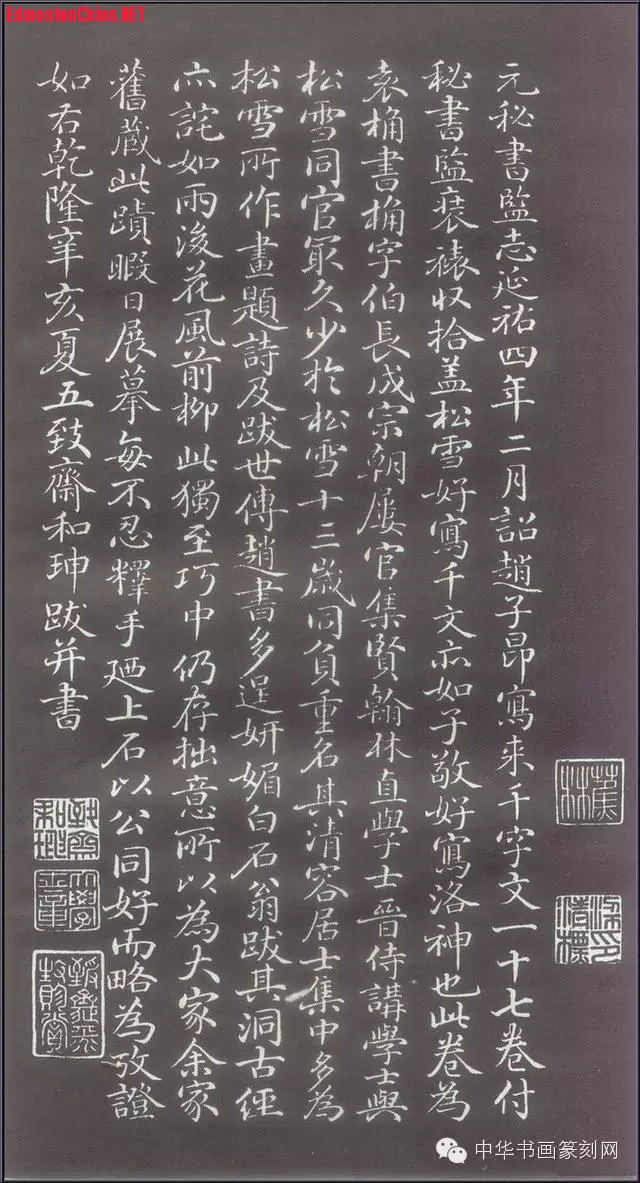 EdmontonChina.NET
元秘書監志延祐四年二月詔趙子昂寫来千字文一十七卷付
秘書監裒裱収拾盖松雪好寫千文亦如子敬好寫洛神也此卷為
袁桷書桷字伯長成宗朝屢官集賢翰林直學士晉侍講學士與
松雪同官冣久少於松雪十三歲同負重名其清容居士集中多為
松雪所作畫題詩及跋世傳趙書多逞妍媚白石翁跋其洞古經
亦詫如雨後花風前柳此獨至巧中仍存拙意所以為大家余家
舊藏此蹟暇日展摹每不忍釋手廼上石以公同好而略為攷證
如右乾隆辛亥夏五致齋和珅跋并書
蕉林
致齋和珅
中华书画篆刻网